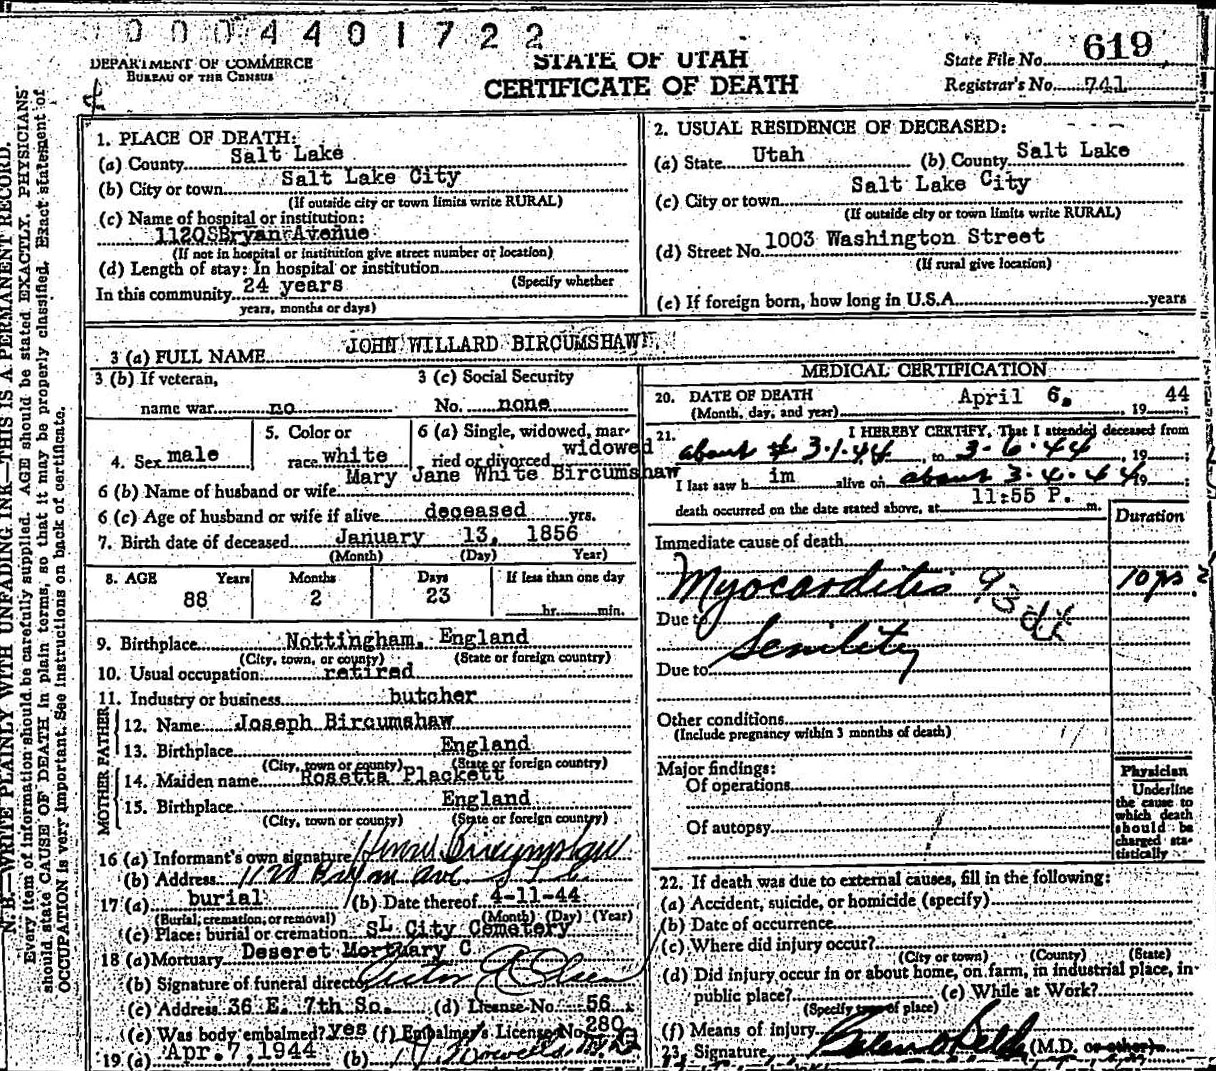 0004401722
DEPARTMENT OF COMMERCE
BUREAU OF THE CENSUS
STATE OF UTAH
CERTIFICATE OF DEATH
State File No. 619
Registrar's No. 741
N.B.—WRITE PLAINLY WITH UNFADING INK—THIS IS A PERMANENT RECORD.
Every item of information should be carefully supplied. AGE should be stated EXACTLY. PHYSICIANS
should state CAUSE OF DEATH in plain terms, so that it may be properly classified. Exact statement of
OCCUPATION is very important. See instructions on back of certificate.
1. PLACE OF DEATH:
(a) County Salt Lake
(b) City or town Salt Lake City
(If outside city or town limits write RURAL)
(c) Name of hospital or institution:
1120 Bryan Avenue
(If not in hospital or institution give street number or location)
(d) Length of stay: In hospital or institution
(Specify whether
In this community 24 years
years, months or days)
2. USUAL RESIDENCE OF DECEASED:
(a) State Utah (b) County Salt Lake
(c) City or town Salt Lake City
(If outside city or town limits write RURAL)
(d) Street No. 1003 Washington Street
(If rural give location)
(e) If foreign born, how long in U.S.A. years
3 (a) FULL NAME JOHN WILLARD BIRCUMSHAW
3 (b) If veteran, 3 (c) Social Security
name war no No. none
4. Sex male 5. Color or race white 6 (a) Single, widowed, married or divorced widowed
6 (b) Name of husband or wife Mary Jane White Bircumshaw
6 (c) Age of husband or wife if alive deceased yrs.
7. Birth date of deceased January 13, 1856
(Month) (Day) Year)
8. AGE Years Months Days If less than one day
88 2 23 hr. min.
9. Birthplace Nottingham, England
(City, town, or county) (State or foreign country)
10. Usual occupation retired
11. Industry or business butcher
FATHER
12. Name Joseph Bircumshaw
13. Birthplace England
(City, town or county) (State or foreign country)
MOTHER
14. Maiden name Rosetta Plackett
15. Birthplace England
(City, town or county) (State or foreign country)
16 (a) Informant's own signature Bircumshaw
(b) Address Ave
17 (a) burial (b) Date thereof 4-11-44
(Burial, cremation, or removal) (Month) (Day) (Year)
(c) Place: burial or cremation SL City Cemetery
18 (a) Mortuary Deseret Mortuary C
(b) Signature of funeral director
(c) Address 36 E. 7th So. (d) License No. 56
(e) Was body embalmed? yes (f) Embalmer's License No. 280
19 (a) Apr. 7, 1944 (b)
MEDICAL CERTIFICATION
20. DATE OF DEATH April 6, 19 44
(Month, day, and year)
21. I HEREBY CERTIFY, That I attended deceased from
about 3-1-44, to 3-6-44, 19
I last saw h im alive on about 3-4-44 19
death occurred on the date stated above, at 11:55 P. m.
Duration
Immediate cause of death
Myocarditis 93 10 yrs
Due to Senility
Due to
Other conditions
(Include pregnancy within 3 months of death)
Major findings:
Of operations
Of autopsy
Physician
Underline
the cause to
which death
should be
charged sta-
tistically
22. If death was due to external causes, fill in the following:
(a) Accident, suicide, or homicide (specify)
(b) Date of occurrence
(c) Where did injury occur?
(City or town) (County) (State)
(d) Did injury occur in or about home, on farm, in industrial place, in
public place? (e) While at Work?
(Specify type of place)
(f) Means of injury
23. Signature (M.D. or other)